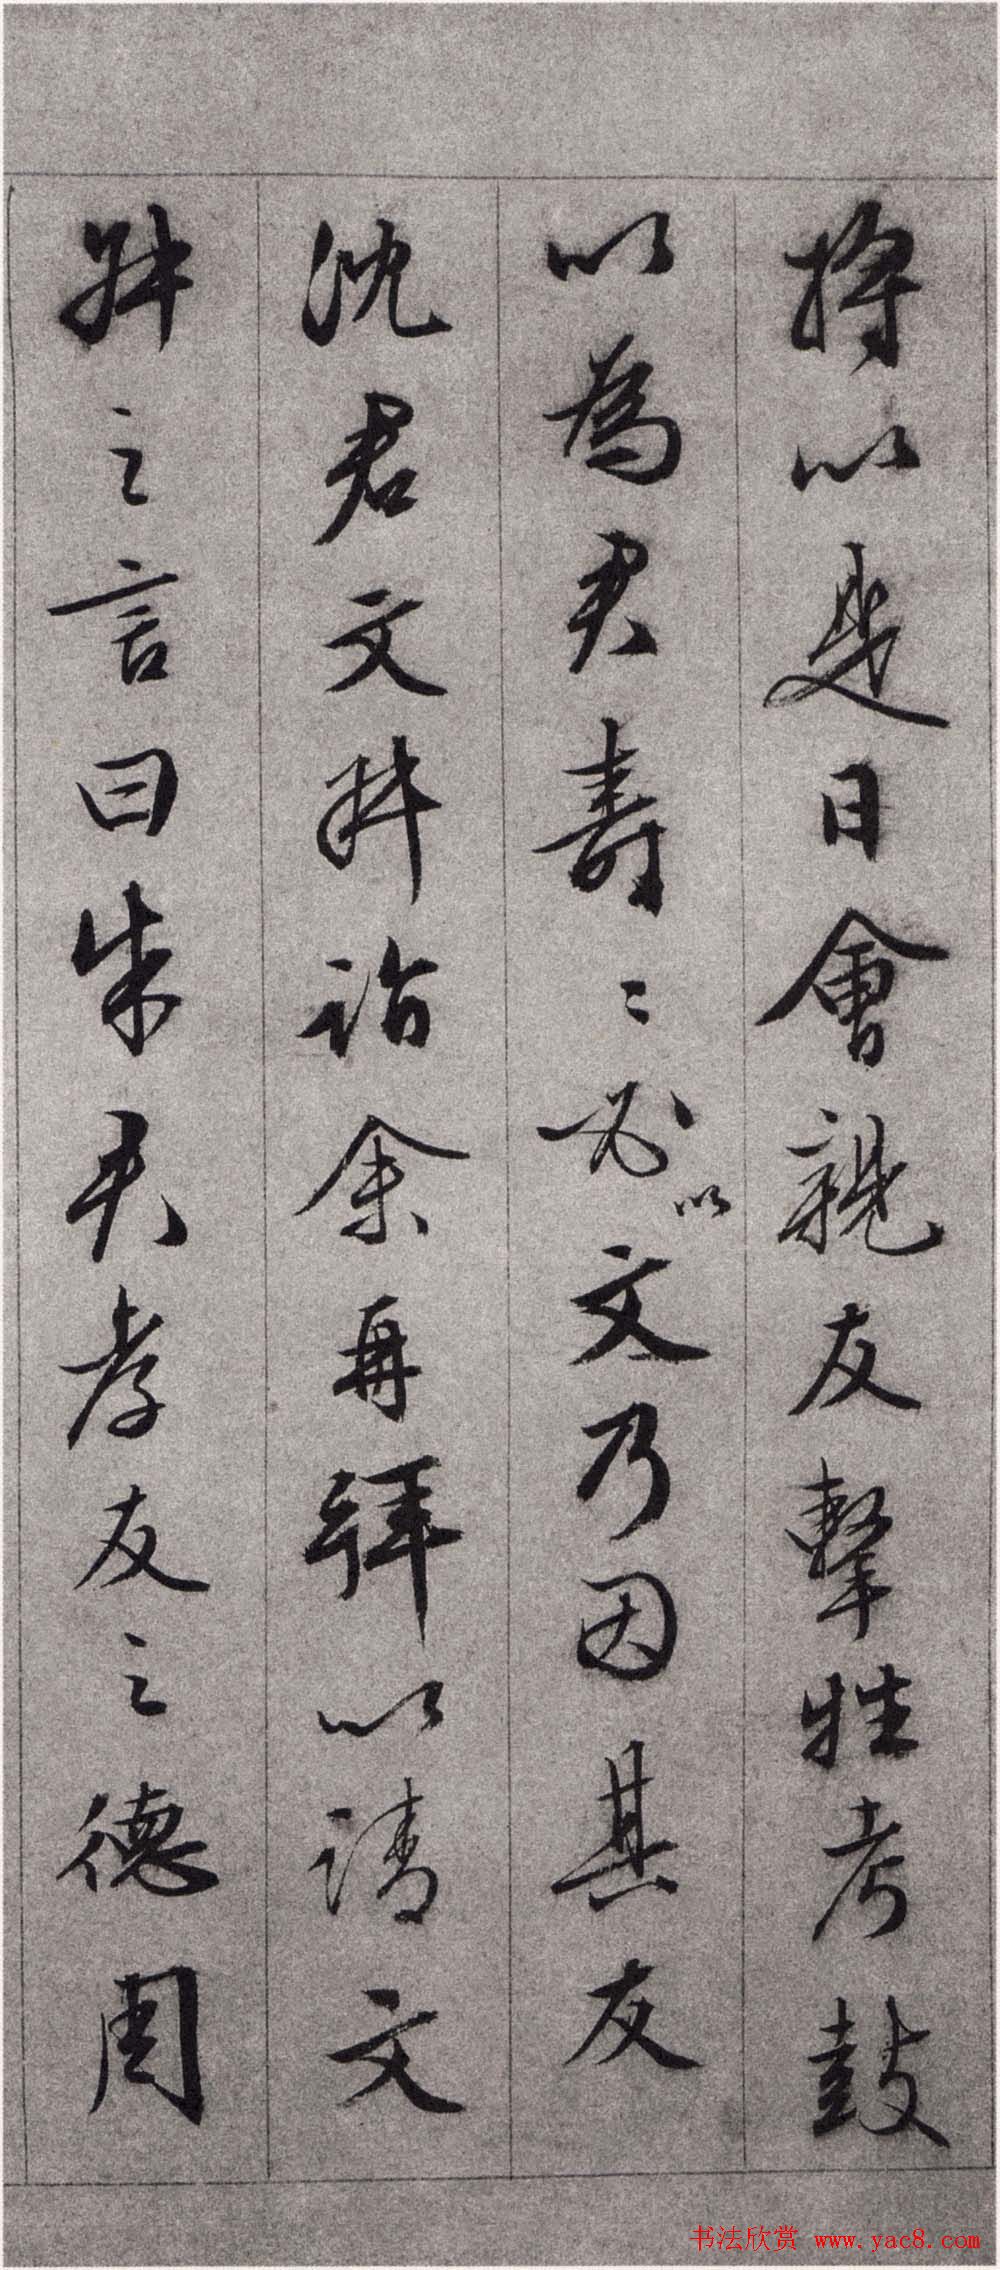 将以是日會親友擊牲考鼓
以為君壽〻必以文乃因其友
沈君文科詣余再拜以請文
科之言曰朱君孝友之德周
书法欣赏 www.yac8.com